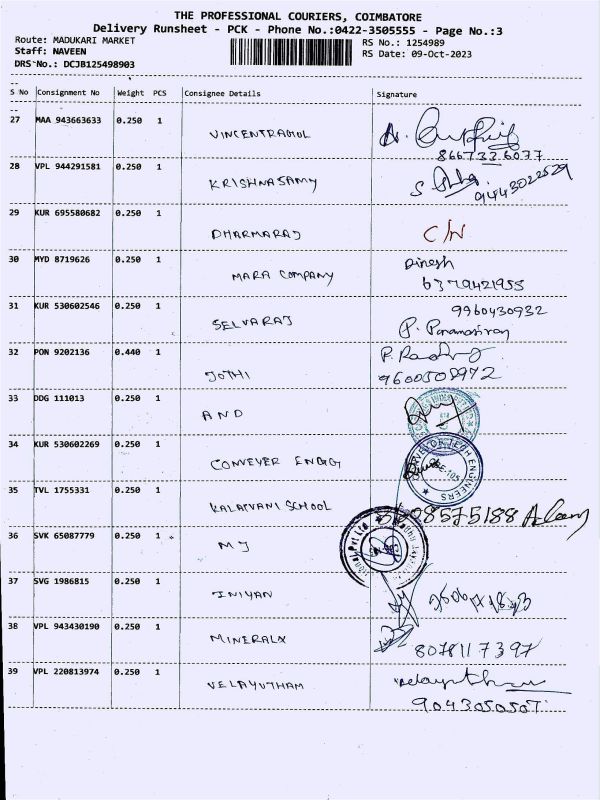 THE PROFESSIONAL COURIERS, COIMBATORE
Delivery Runsheet - PCK - Phone No.:0422-3505555 - Page No.:3
Route: MADUKARI MARKET
RS No.: 1254989
Staff: NAVEEN
RS Date: 09-Oct-2023
DRS No.: DCJB125498903
S No Consignment No Weight PCS Consignee Details Signature
27 MAA 943663633 0.250 1
VINCENTRAGOL
8667336077
28 VPL 944291581 0.250 1
KRISHNASAMY
9443022529
29 KUR 695580682 0.250 1
DHARMARAJ C/W
30 MYD 8719626 0.250 1 Dinesh
MARA COMPANY
6379421955
31 KUR 530602546 0.250 1 9960430932
SELVARAJ P. Paramasivan
32 PON 9202136 0.440 1
JOTHI 9600508972
33 DDG 111013 0.250 1
AND
34 KUR 530602269 0.250 1
CONVEYER ENGG
ENGINEERS
35 TVL 1755331 0.250 1
KALAIVANI SCHOOL
8575188
36 SVK 65087779 0.250 1
MJ
Pvt Ltd
37 SVG 1986815 0.250 1
INIYAN
38 VPL 943430190 0.250 1
MINERALX
8078117397
39 VPL 220813974 0.250 1
VELAYUTHAM
9043050507